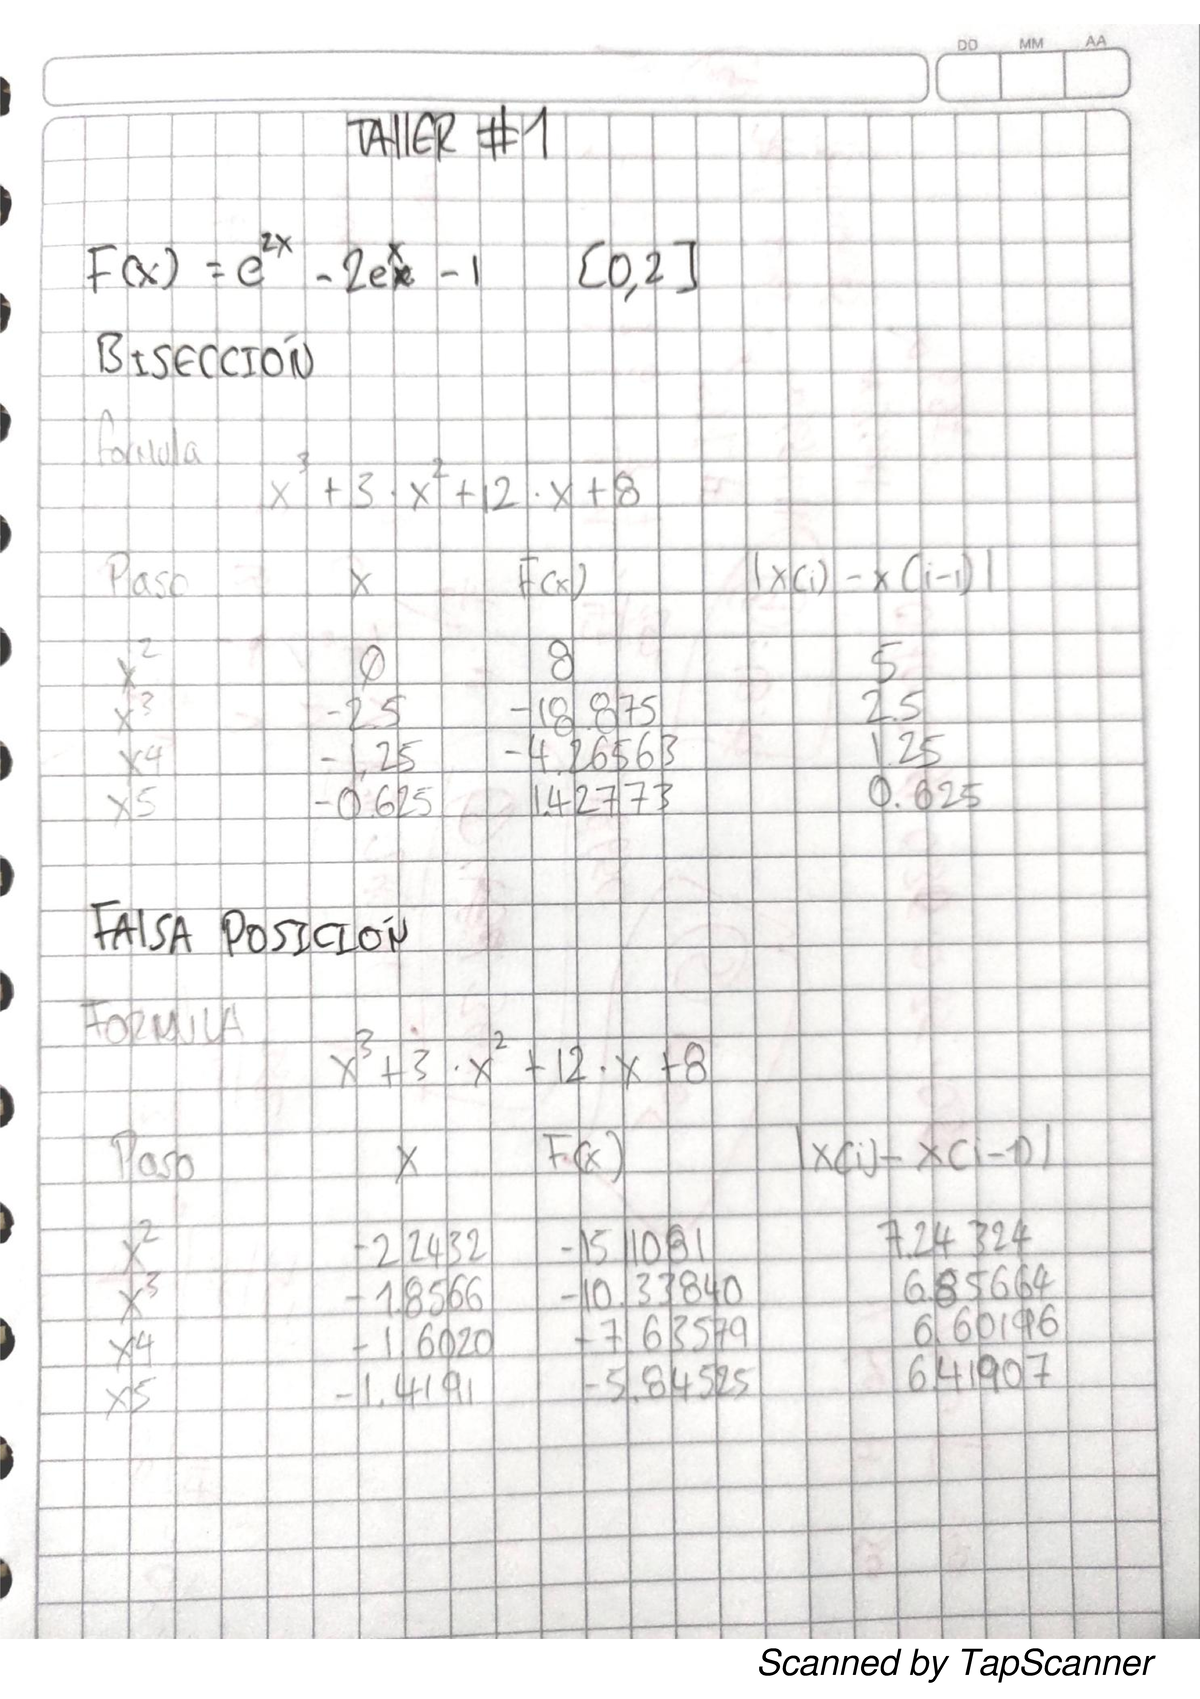 DD MM AA
TAllER #1
F(x) = e^2x - 2e^x - 1 [0,2]
BISECCIÓN
formula
x^3 + 3 · x^2 + 12 · x + 8
Paso x F(x) |x(i) - x(i-1)|
x^2 0 8 5
x^3 -2.5 -18.875 2.5
x4 -1,25 -4.26563 1.25
x5 -0.625 1.42773 0.625
FAlSA POSICIÓN
FORMULA
x^3 + 3 · x^2 + 12 · x + 8
Paso x F(x) |x(i) - x(i-1)|
x^2 -2.2432 -15.1081 7.24324
x^3 -1.8566 -10.33840 6.85664
x4 -1.6020 -7.63579 6.60196
x5 -1.4191 -5.84525 6.41907
Scanned by TapScanner